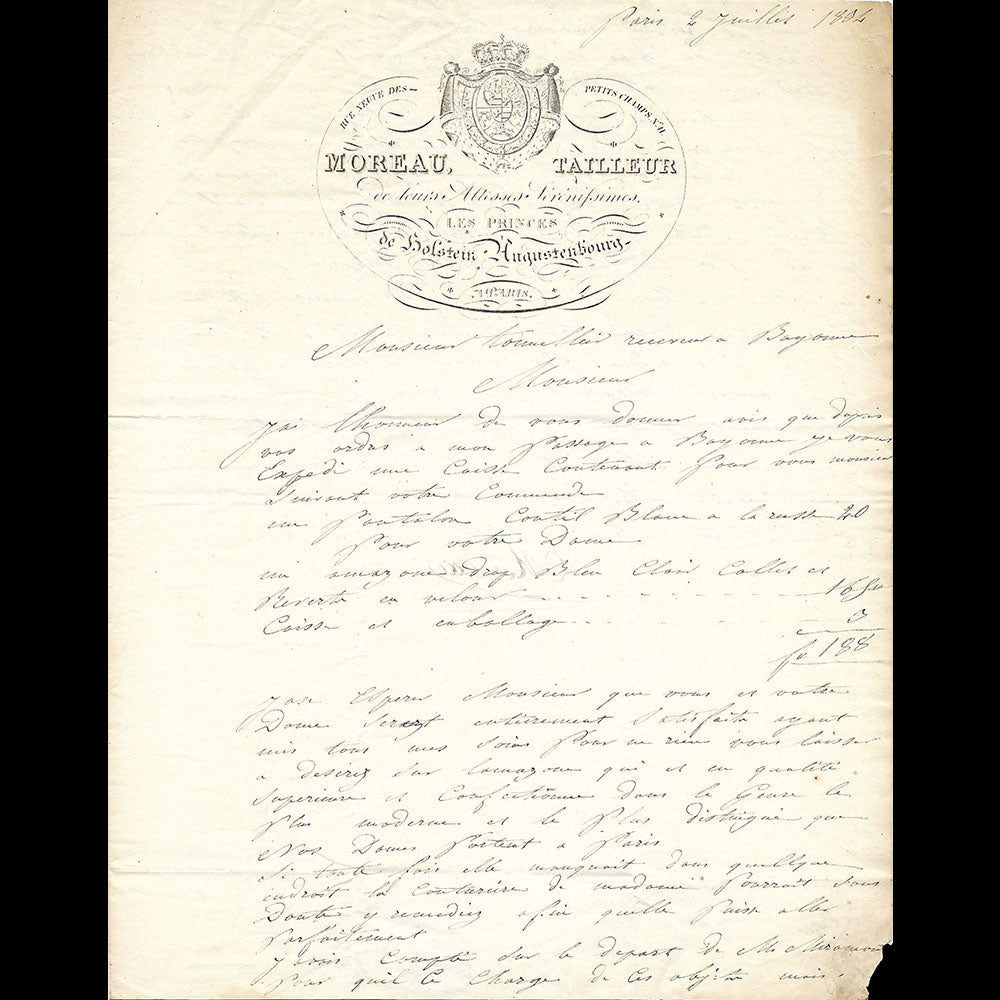 Paris 2 juillet 1832
RUE NEUVE DES PETITS CHAMPS N.º 11.
MOREAU, TAILLEUR
de leurs Altesses Sérénissimes,
LES PRINCES
de Holstein-Augustenbourg
A PARIS.
Monsieur receveur a Bayonne
Monsieur
jai lhonneur de vous donner avis que depuis
vos ordres a mon Passage a Bayonne je vous
Expedi une Caisse Contenant Pour vous monsieur
Suivant votre Commande
un Pantalon Coutil Blanc a la russe 20
Pour votre Dame
un amazone drap Bleu Clair Collet et
Reverts en velour 165
Caisse et enballage 3
fr 188
jose Esperer Monsieur que vous et votre
Dame Serezt entièrement Satisfaits ayant
mis tous mes Soins Pour ne rien vous laisser
a desirez Sur lamazone qui et en qualité
Superieure et Confectionné dans le Genre le
Plus moderne et le Plus distingué que
Nos Dames Portent a Paris
Si toute fois elle manquait dans quellque
endroit la Couturiére de madame Pourrait Sans
Doute y remediez afin quelle Puisse aller
Parfaitement
javais Compté Sur le depart de Mr
Pour quil Ce Charge de Ces objets mais